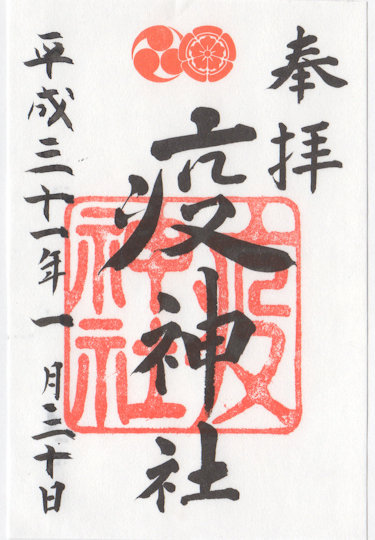 奉拝
疫神社
疫神社
平成三十一年一月三十日